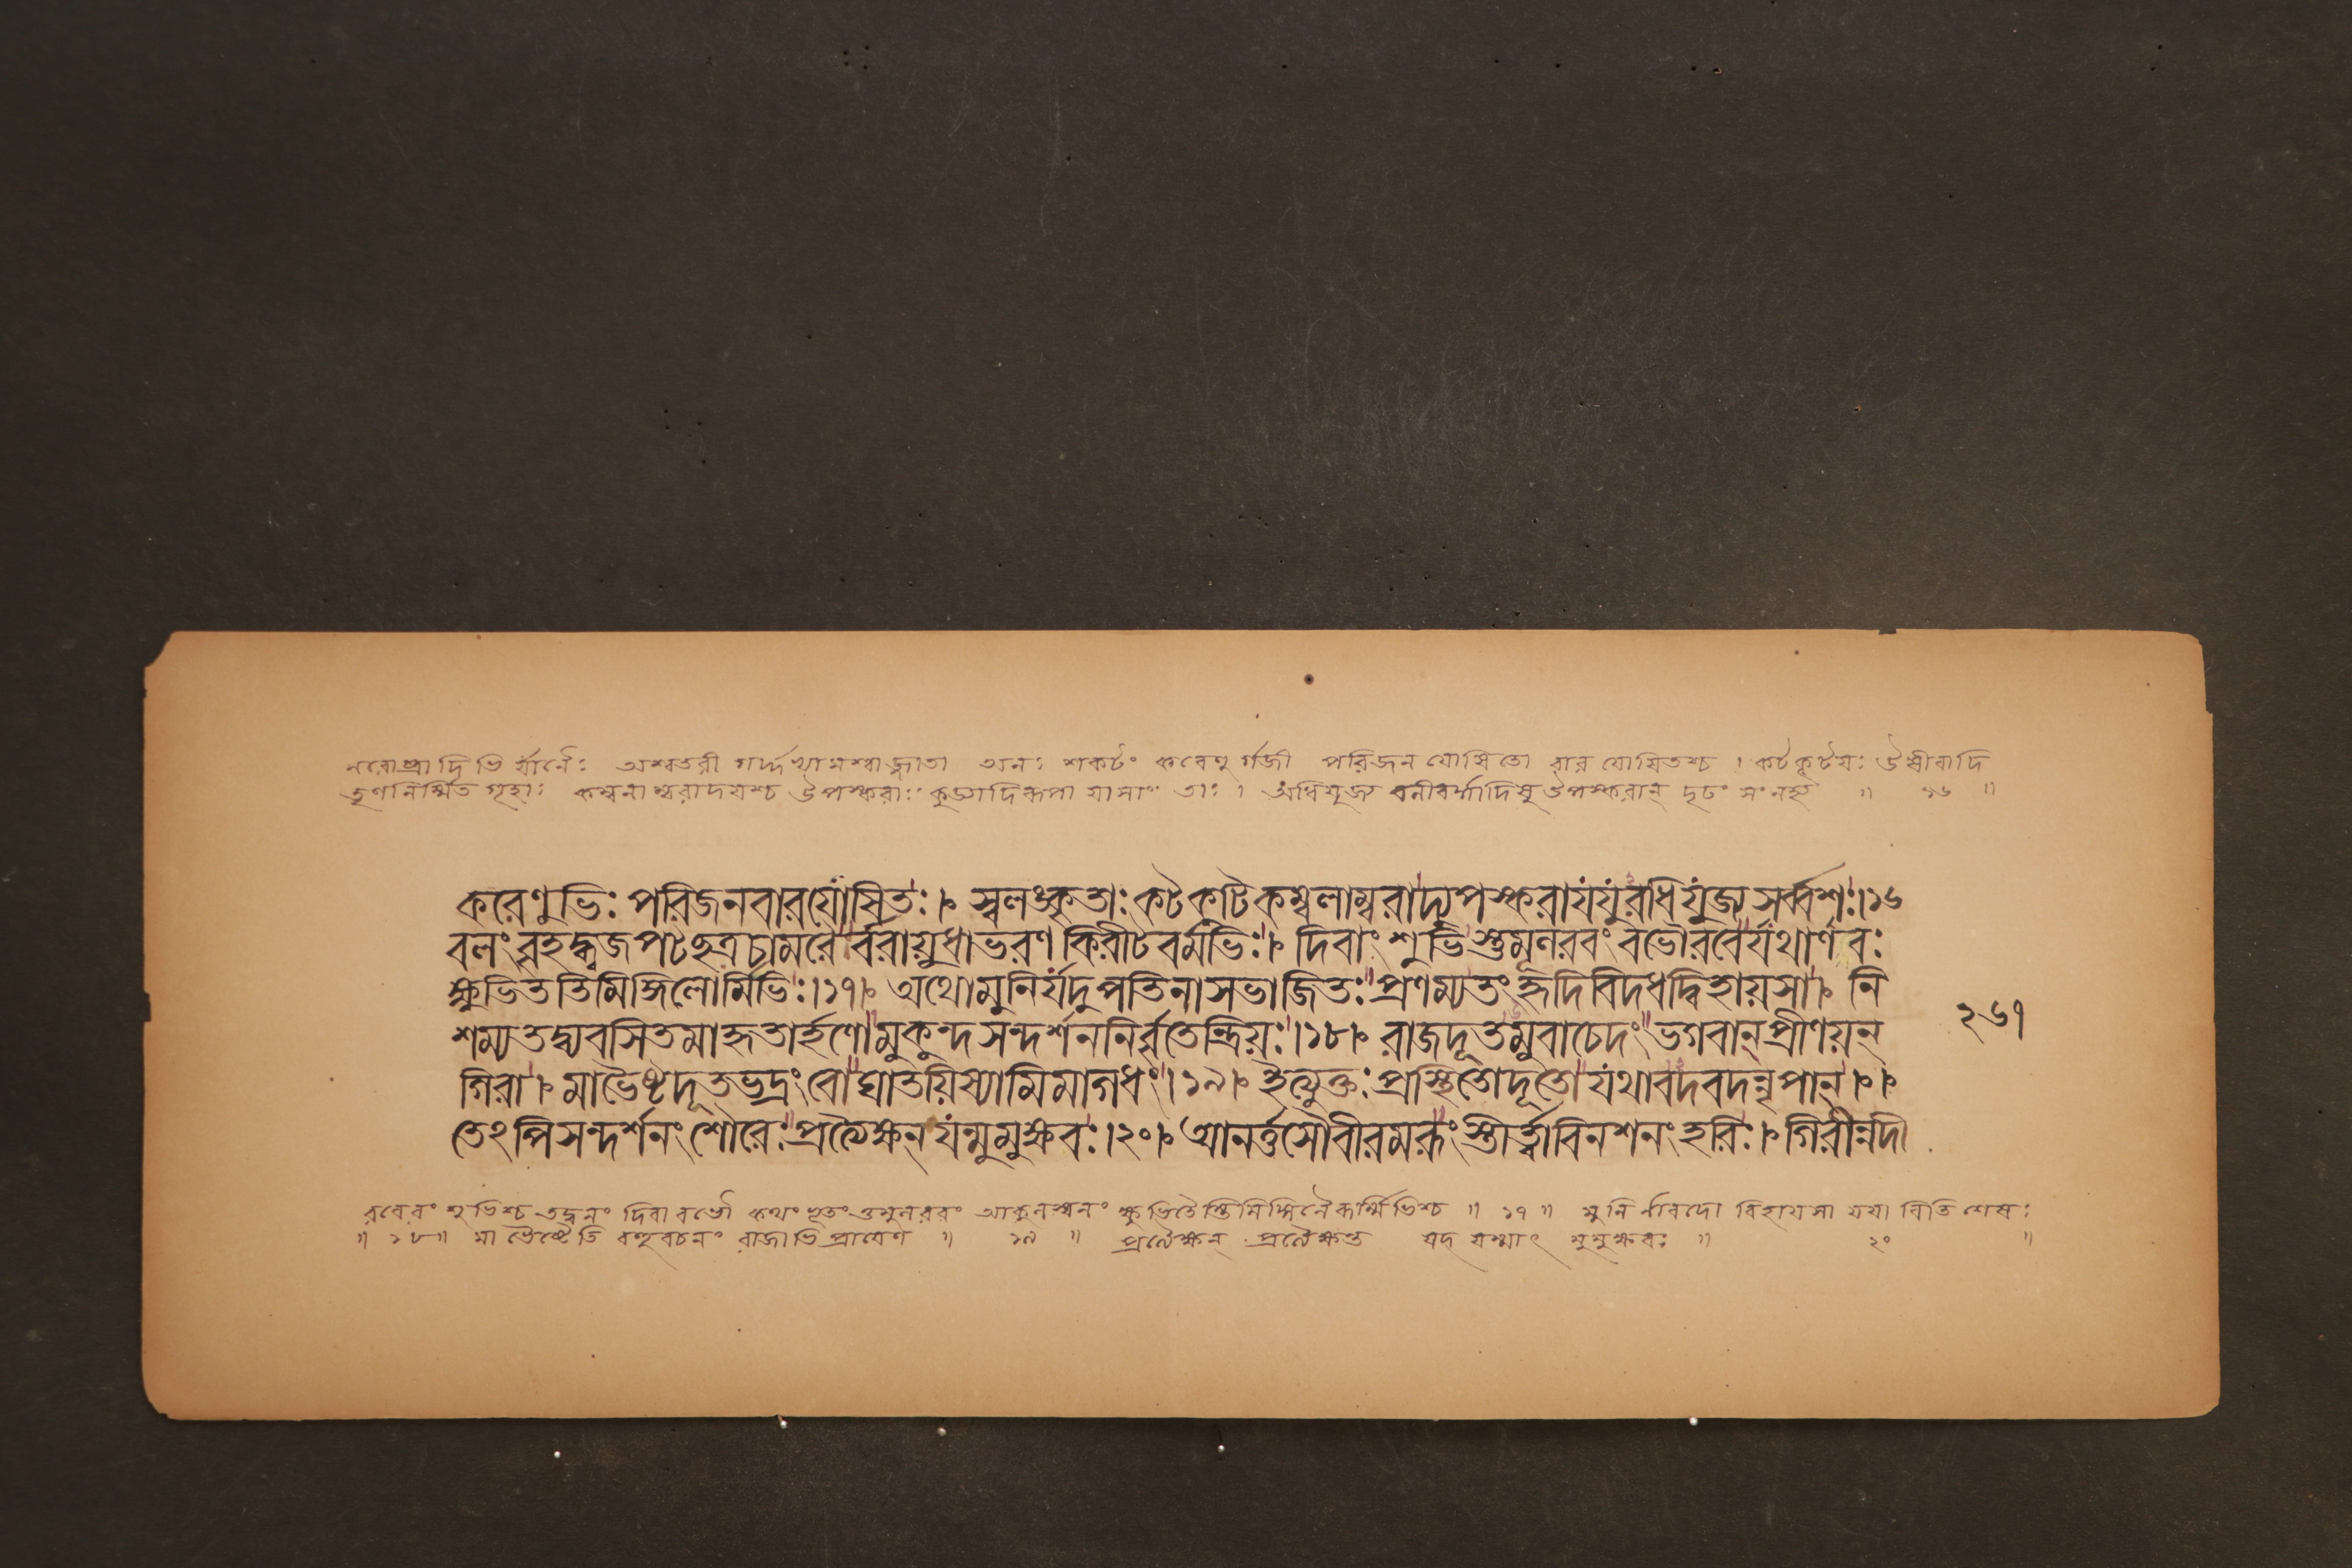 নরোষ্ট্রাদিভির্যানৈঃ অশ্বতরী গর্দ্দভ্যামশ্বাজ্জাতা অনঃ শকটং করেণু র্গজী পরিজনযোষিতো বারযোষিতশ্চ । কটকূটযঃ উষীরাদি
তৃণনির্ম্মিত গৃহাঃ কম্বলাম্বরাদযশ্চ উপস্করাঃ যাসাং তাঃ । অধিযুজ্য বলীবর্দ্দাদিষু উপস্করান্ দৃঢং সংনহ্য ॥ ১৬ ॥
করেণুভিঃ পরিজনবারযোষিতঃ । স্বলঙ্কৃতাঃ কটকটিকম্বলাম্বরাদ্যুপস্করা যযুরধিযুজ্য সর্ব্বশঃ । ১৬
বলং বৃহদ্ধ্বজপটছত্রচামরৈ র্বরায়ুধাভরণ কিরীটবর্মভিঃ । দিবাংশুভিস্তুমূলরবং বভৌ রবের্যথার্ণবঃ
ক্ষুভিততিমিঙ্গিলোর্মিভিঃ । ১৭ । অথো মুনির্যদুপতিনা সভাজিতঃ প্রণম্য তং হৃদি বিদধদ্বিহায়সা । নি
শম্য তদ্ব্যবসিতমাহৃতার্হণো মুকুন্দসন্দর্শননির্বৃতেন্দ্রিয়ঃ । ১৮ । রাজদূতমুবাচেদং ভগবান্ প্রীণয়ন্
গিরা । মাভৈষ্ট দূত ভদ্রং বো ঘাতয়িষ্যামি মাগধং । ১৯ । ইত্যুক্তঃ প্রস্থিতো দূতো যথাবদবদন্নৃপান্ ।
তেঽপি সন্দর্শনং শৌরেঃ প্রত্যৈক্ষন্ যন্মুমুক্ষবঃ । ২০ । আনর্ত্তসৌবীরমরুং স্তীর্ত্ত্বা বিনশনং হরিঃ । গিরীন্নদী
২৬৭
রবেরংশুভিশ্চ তদ্বলং দিবা বভৌ কথং ভূতং তুমুলরবং আকুলস্বনং ক্ষুভিতৈস্তিমিঙ্গিলৈরূর্ম্মিভিশ্চ ॥ ১৭ ॥ মুনি র্নারদো বিহাযসা যযাবিতি শেষঃ
॥ ১৮ ॥ মা ভৈষ্টেতি বহুবচনং রাজাভিপ্রাযেণ ॥ ১৯ ॥ প্রত্যৈক্ষন্ প্রত্যৈক্ষন্ত যদ্ যস্মাৎ মুমুক্ষবঃ ॥ ২০ ॥